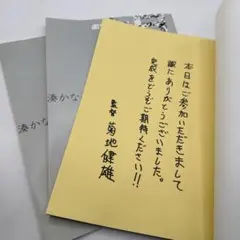 本日はご参加いただきまして
誠にありがとうございました。
更級をどうもご期待ください!!
監督 菊地健雄
湊かな
湊かな